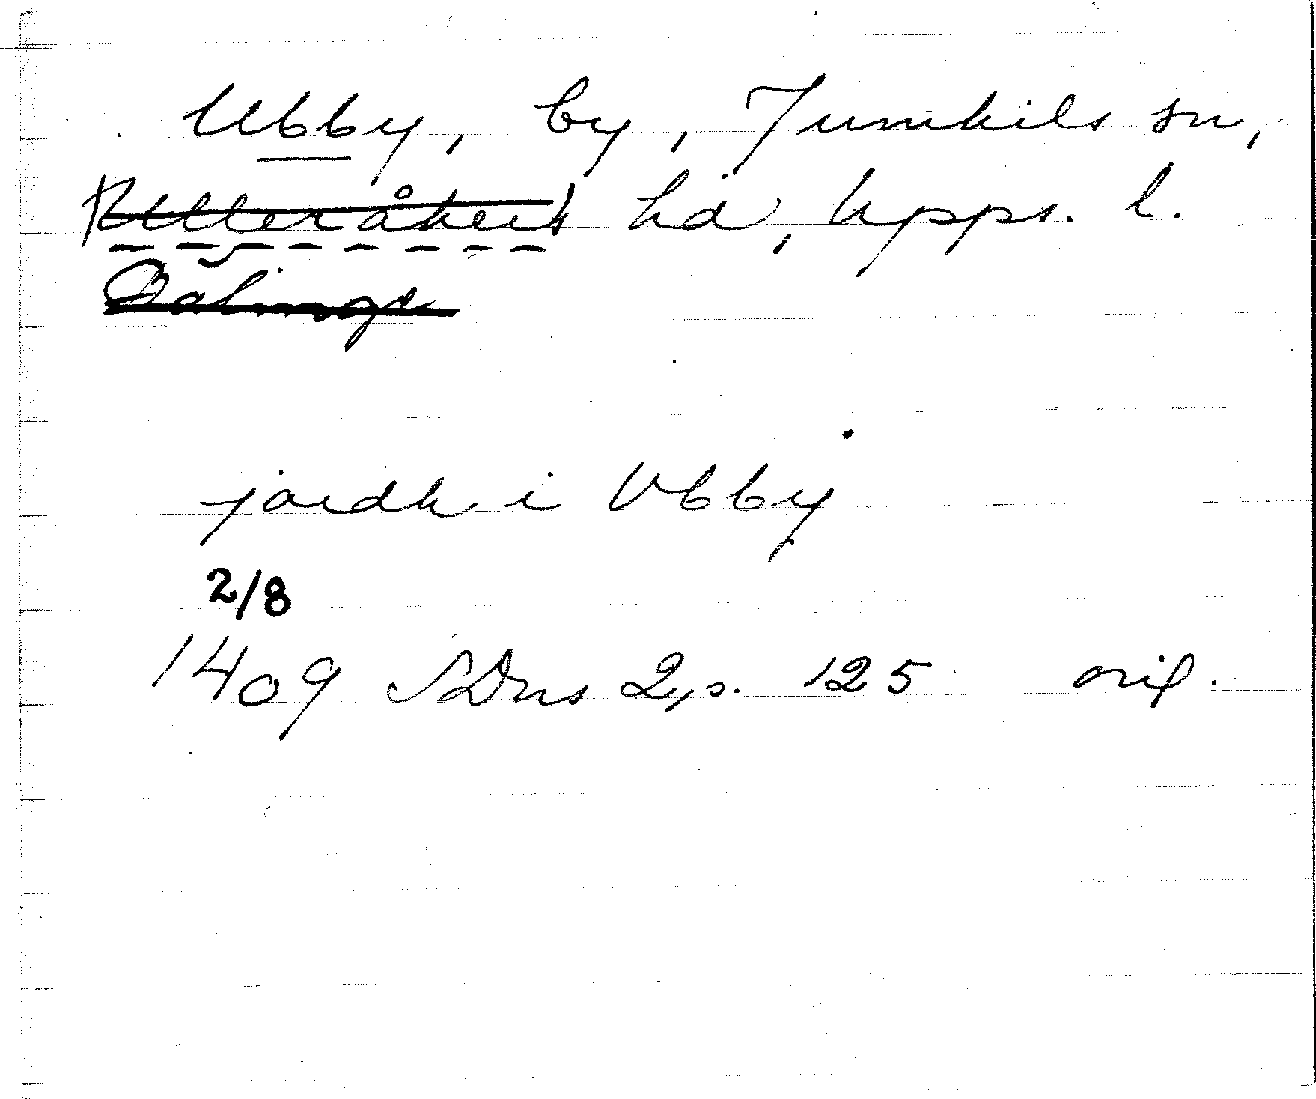 Ubby, by, Jumkils sn,
Ulleråkers hd, Upps. l.
Bälinge
jordh i Vbby
2/8
1409 SDns 2, s. 125 orig.